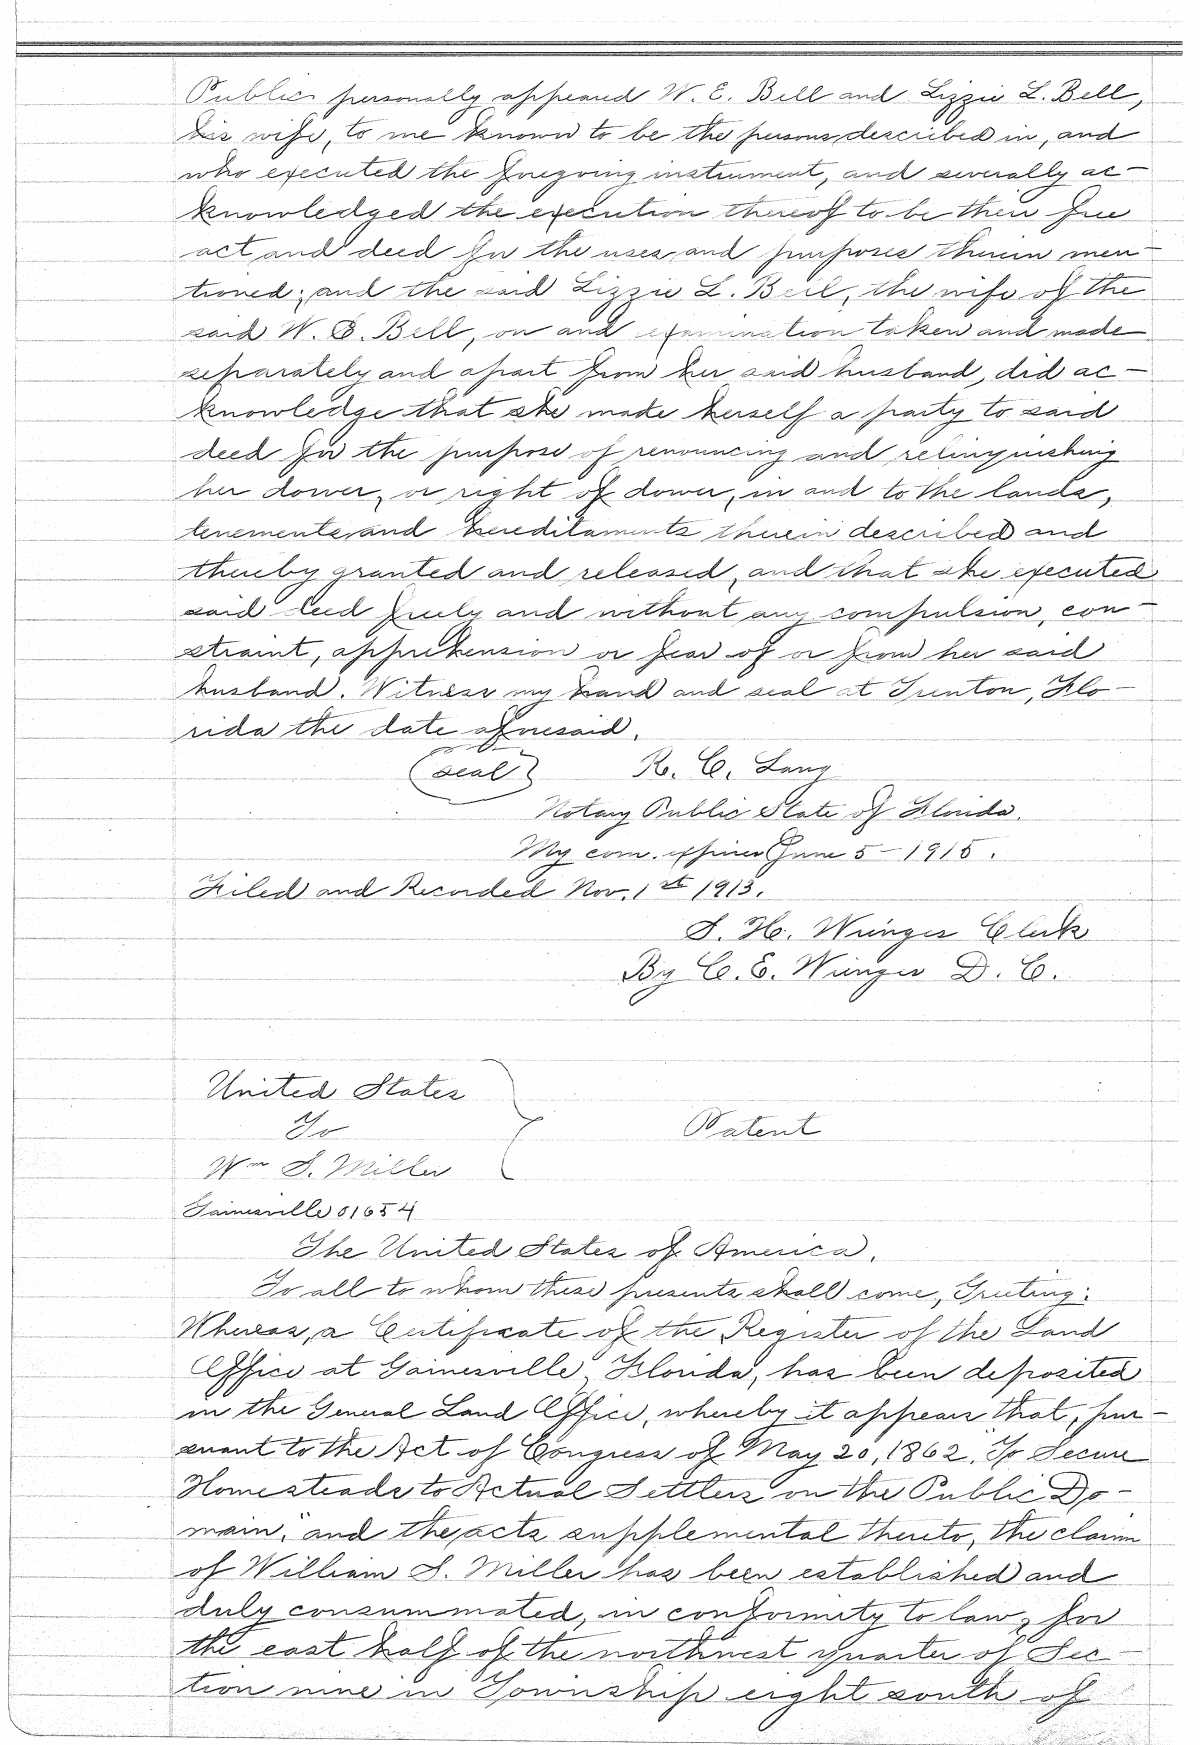 Public personally appeared W. E. Bell and Lizzie L. Bell,
his wife, to me known to be the persons described in, and
who executed the foregoing instrument, and severally ac-
knowledged the execution thereof to be their free
act and deed for the uses and purposes therein men-
tioned; and the said Lizzie L. Bell, the wife of the
said W. E. Bell, on and examination taken and made
separately and apart from her said husband, did ac-
knowledge that she made herself a party to said
deed for the purpose of renouncing and relinquishing
her dower, or right of dower, in and to the lands,
tenements and hereditaments therein described and
thereby granted and released, and that she executed
said deed freely and without any compulsion, con-
straint, apprehension or fear of or from her said
husband. Witness my hand and seal at Trenton, Flo-
rida the date aforesaid.
(seal) R. C. Lang
Notary Public State of Florida.
My com. expires June 5-1915.
Filed and Recorded Nov. 1st 1913.
S. H. Wienges Clerk
By C. E. Wienges D. C.
United States
To Patent
Wm S. Miller
Gainesville 01654
The United States of America,
To all to whom these presents shall come, Greeting:
Whereas, a Certificate of the Register of the Land
Office at Gainesville, Florida, has been deposited
in the General Land Office, whereby it appears that, pur-
suant to the Act of Congress of May 20, 1862, "To Secure
Homesteads to Actual Settlers on the Public Do-
main," and the acts supplemental thereto, the claim
of William S. Miller has been established and
duly consummated, in conformity to law, for
the east half of the northwest quarter of Sec-
tion nine in Township eight south of